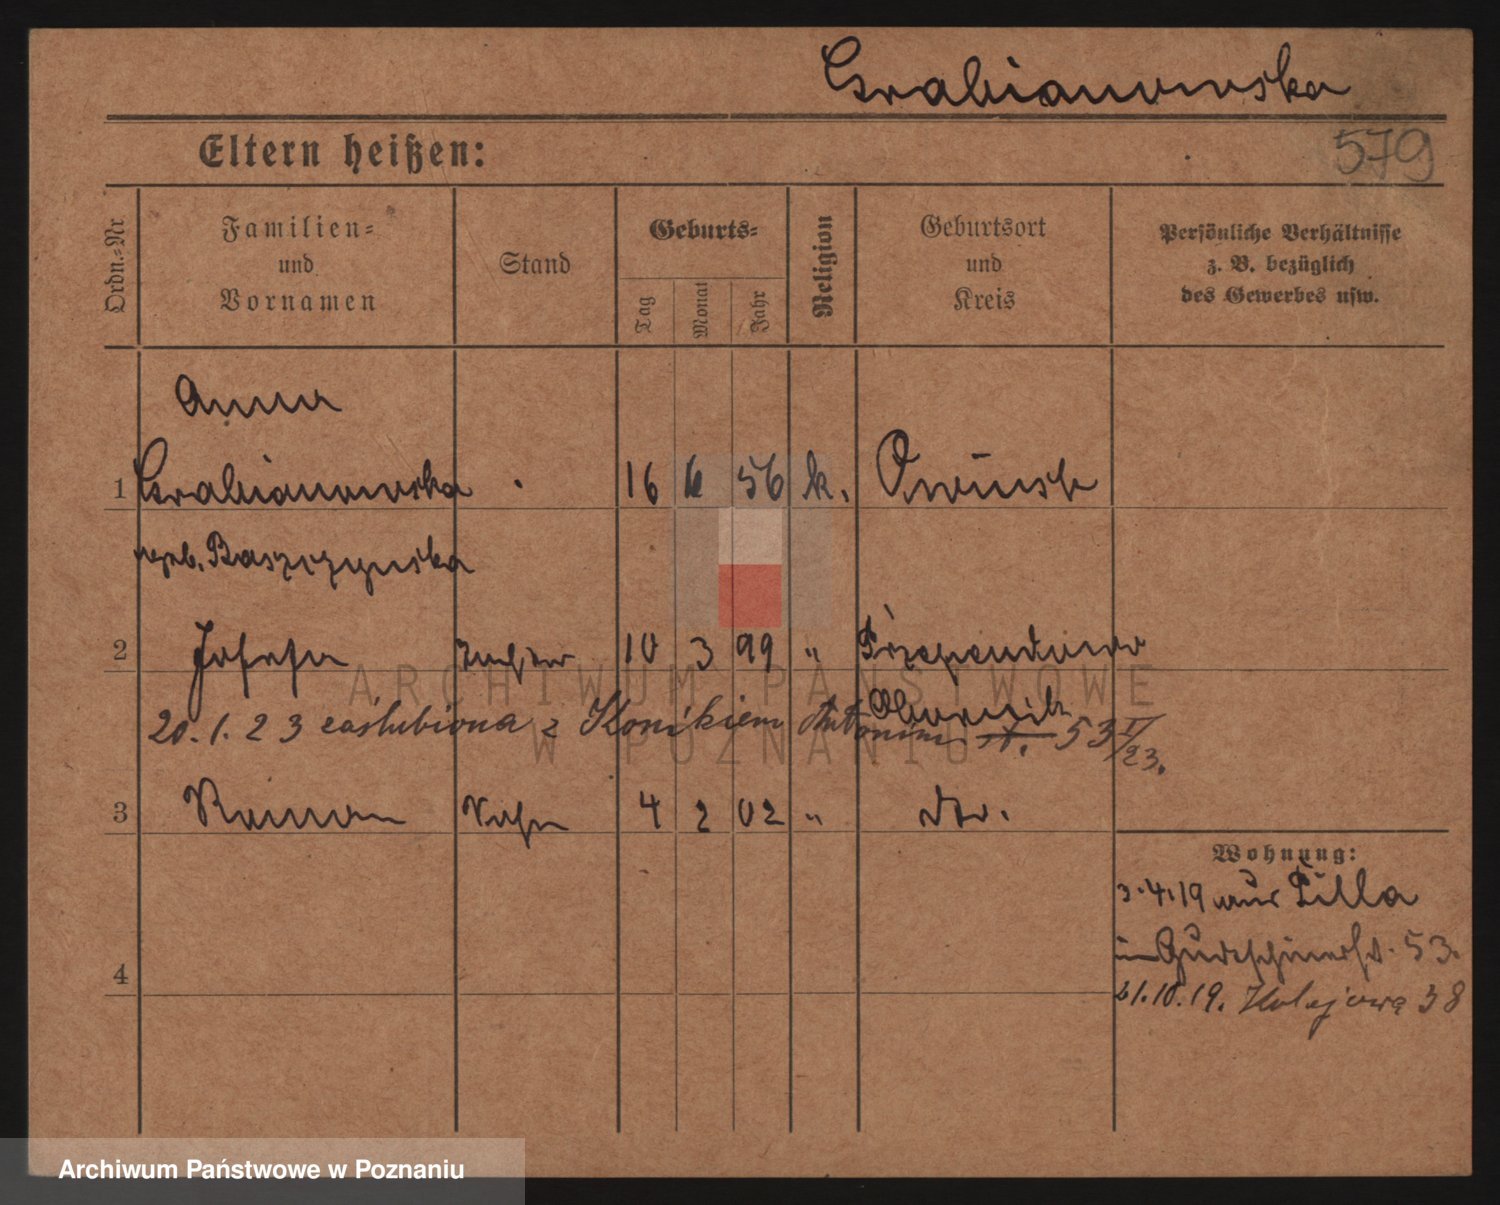 Grabianowska
579
Eltern heißen:
Ordn.-Nr
Familien-
und
Vornamen
Stand
Geburts-
Tag
Monat
Jahr
Religion
Geburtsort
und
Kreis
Persönliche Verhältnisse
z. B. bezüglich
des Gewerbes usw.
Anna
1 Grabianowska 16 6 56 k. Owinsk
geb. Baszczynska
2 Josefa Tochter 10 3 99 " Przependowo
Obornik
20.1.23 zaślubiona z Konikiem Antonim A. 53 I/23.
3 Roman Sohn 4 2 02 " dto.
Wohnung:
3.4.19 aus Pilla
in Gurtschinerst. 53.
4
21.10.19. Kolejowa 38
ARCHIWUM PAŃSTWOWE
W POZNANIU
Archiwum Państwowe w Poznaniu